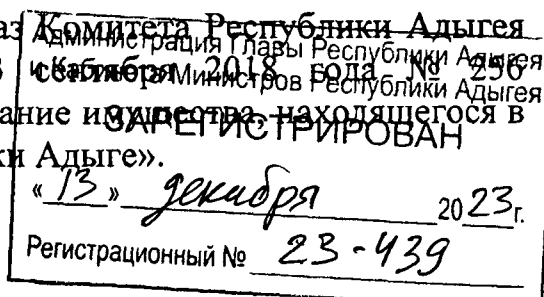 аз Комитета Республики Адыгея
сентября 2018 года № 256
ание имущества, находящегося в
ки Адыге».
Администрация Главы Республики Адыгея
и Кабинета Министров Республики Адыгея
ЗАРЕГИСТРИРОВАН
«13» декабря 2023г.
Регистрационный № 23-439